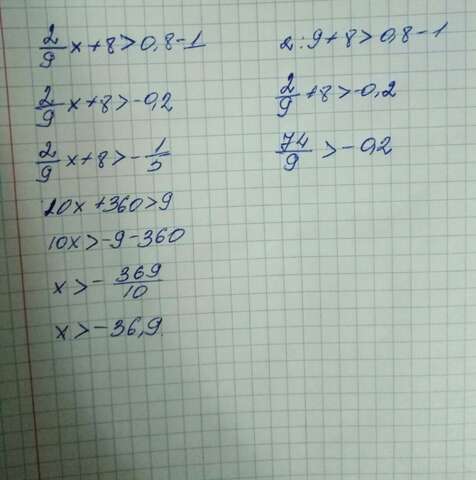 2/9 x + 8 > 0,8 - 1
2/9 x + 8 > -0,2
2/9 x + 8 > - 1/5
10x + 360 > 9
10x > -9 - 360
x > - 369/10
x > -36,9
2 : 9 + 8 > 0,8 - 1
2/9 + 8 > -0,2
74/9 > -0,2